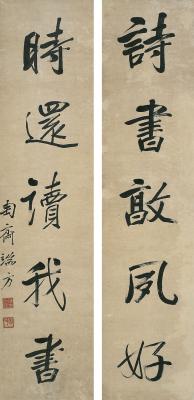 詩書敦夙好
時還讀我書
匋齋端方